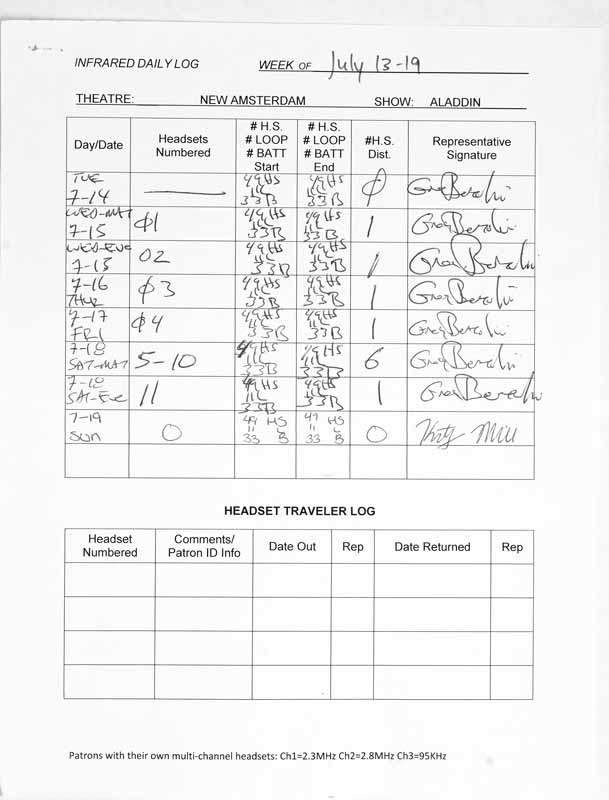 INFRARED DAILY LOG WEEK OF July 13-19
THEATRE: NEW AMSTERDAM SHOW: ALADDIN
Day/Date Headsets Numbered # H.S. # LOOP # BATT Start # H.S. # LOOP # BATT End #H.S. Dist. Representative Signature
TUE 7-14 — 49HS 11L 33B 49HS 11L 33B Ø
WED-MAT 7-15 Ø1 49HS 11L 33B 49HS 11L 33B 1
WED-EVE 7-15 02 49HS 11L 33B 49HS 11L 33B 1
7-16 THUR Ø3 49HS 11L 33B 49HS 11L 33B 1
7-17 FRI Ø4 49HS 11L 33B 49HS 11L 33B 1
7-18 SAT-MAT 5-10 49HS 11L 33B 49HS 11L 33B 6
7-18 SAT-EVE 11 49HS 11L 33B 49HS 11L 33B 1
7-19 SUN 0 49 HS 11 L 33 B 49 HS 11 L 33 B 0
HEADSET TRAVELER LOG
Headset Numbered Comments/ Patron ID Info Date Out Rep Date Returned Rep
Patrons with their own multi-channel headsets: Ch1=2.3MHz Ch2=2.8MHz Ch3=95KHz